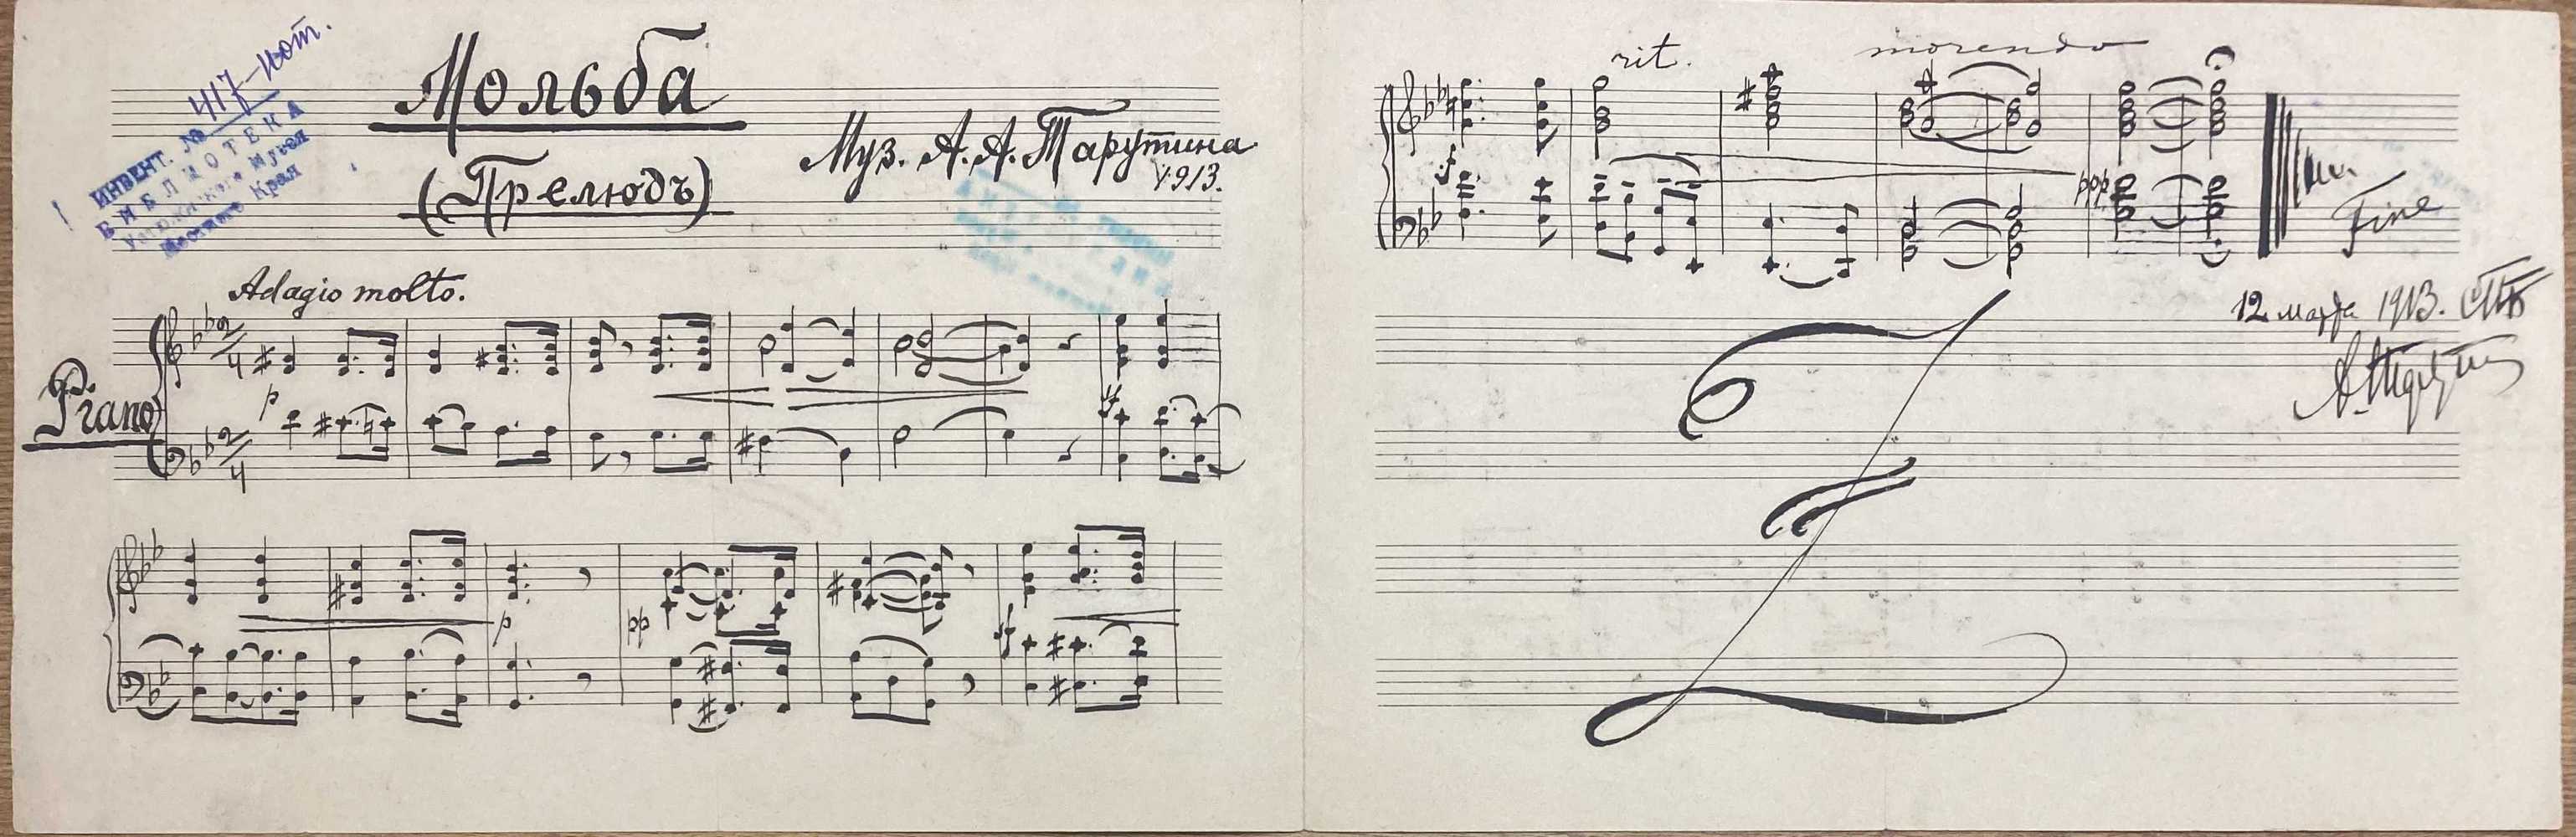 417-нот.
ИНВЕНТ. №
БИБЛИОТЕКА
Местного Края
Мольба
(Прелюдъ)
Муз. А. А. Тарутина
1913.
Adagio molto.
Piano
p
sf
p
pp
sf
rit.
morendo
sf
ppp
Fine
12 марта 1913. СПБ
А. Тарутин